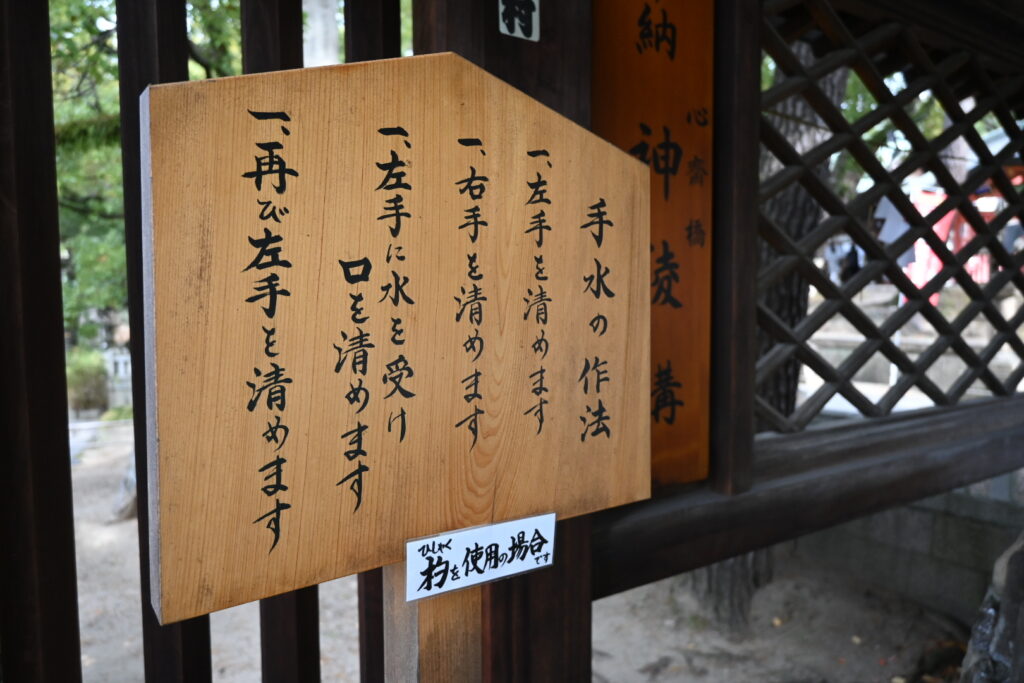 手水の作法
一、左手を清めます
一、右手を清めます
一、左手に水を受け
口を清めます
一、再び左手を清めます
ひしゃく
杓を使用の場合です
村
心齋橋
納神陵講